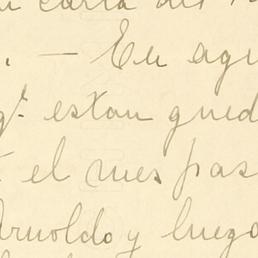 carta del
. — En agu
qᵉ. estan qued
el mes pas
Arnoldo y luego